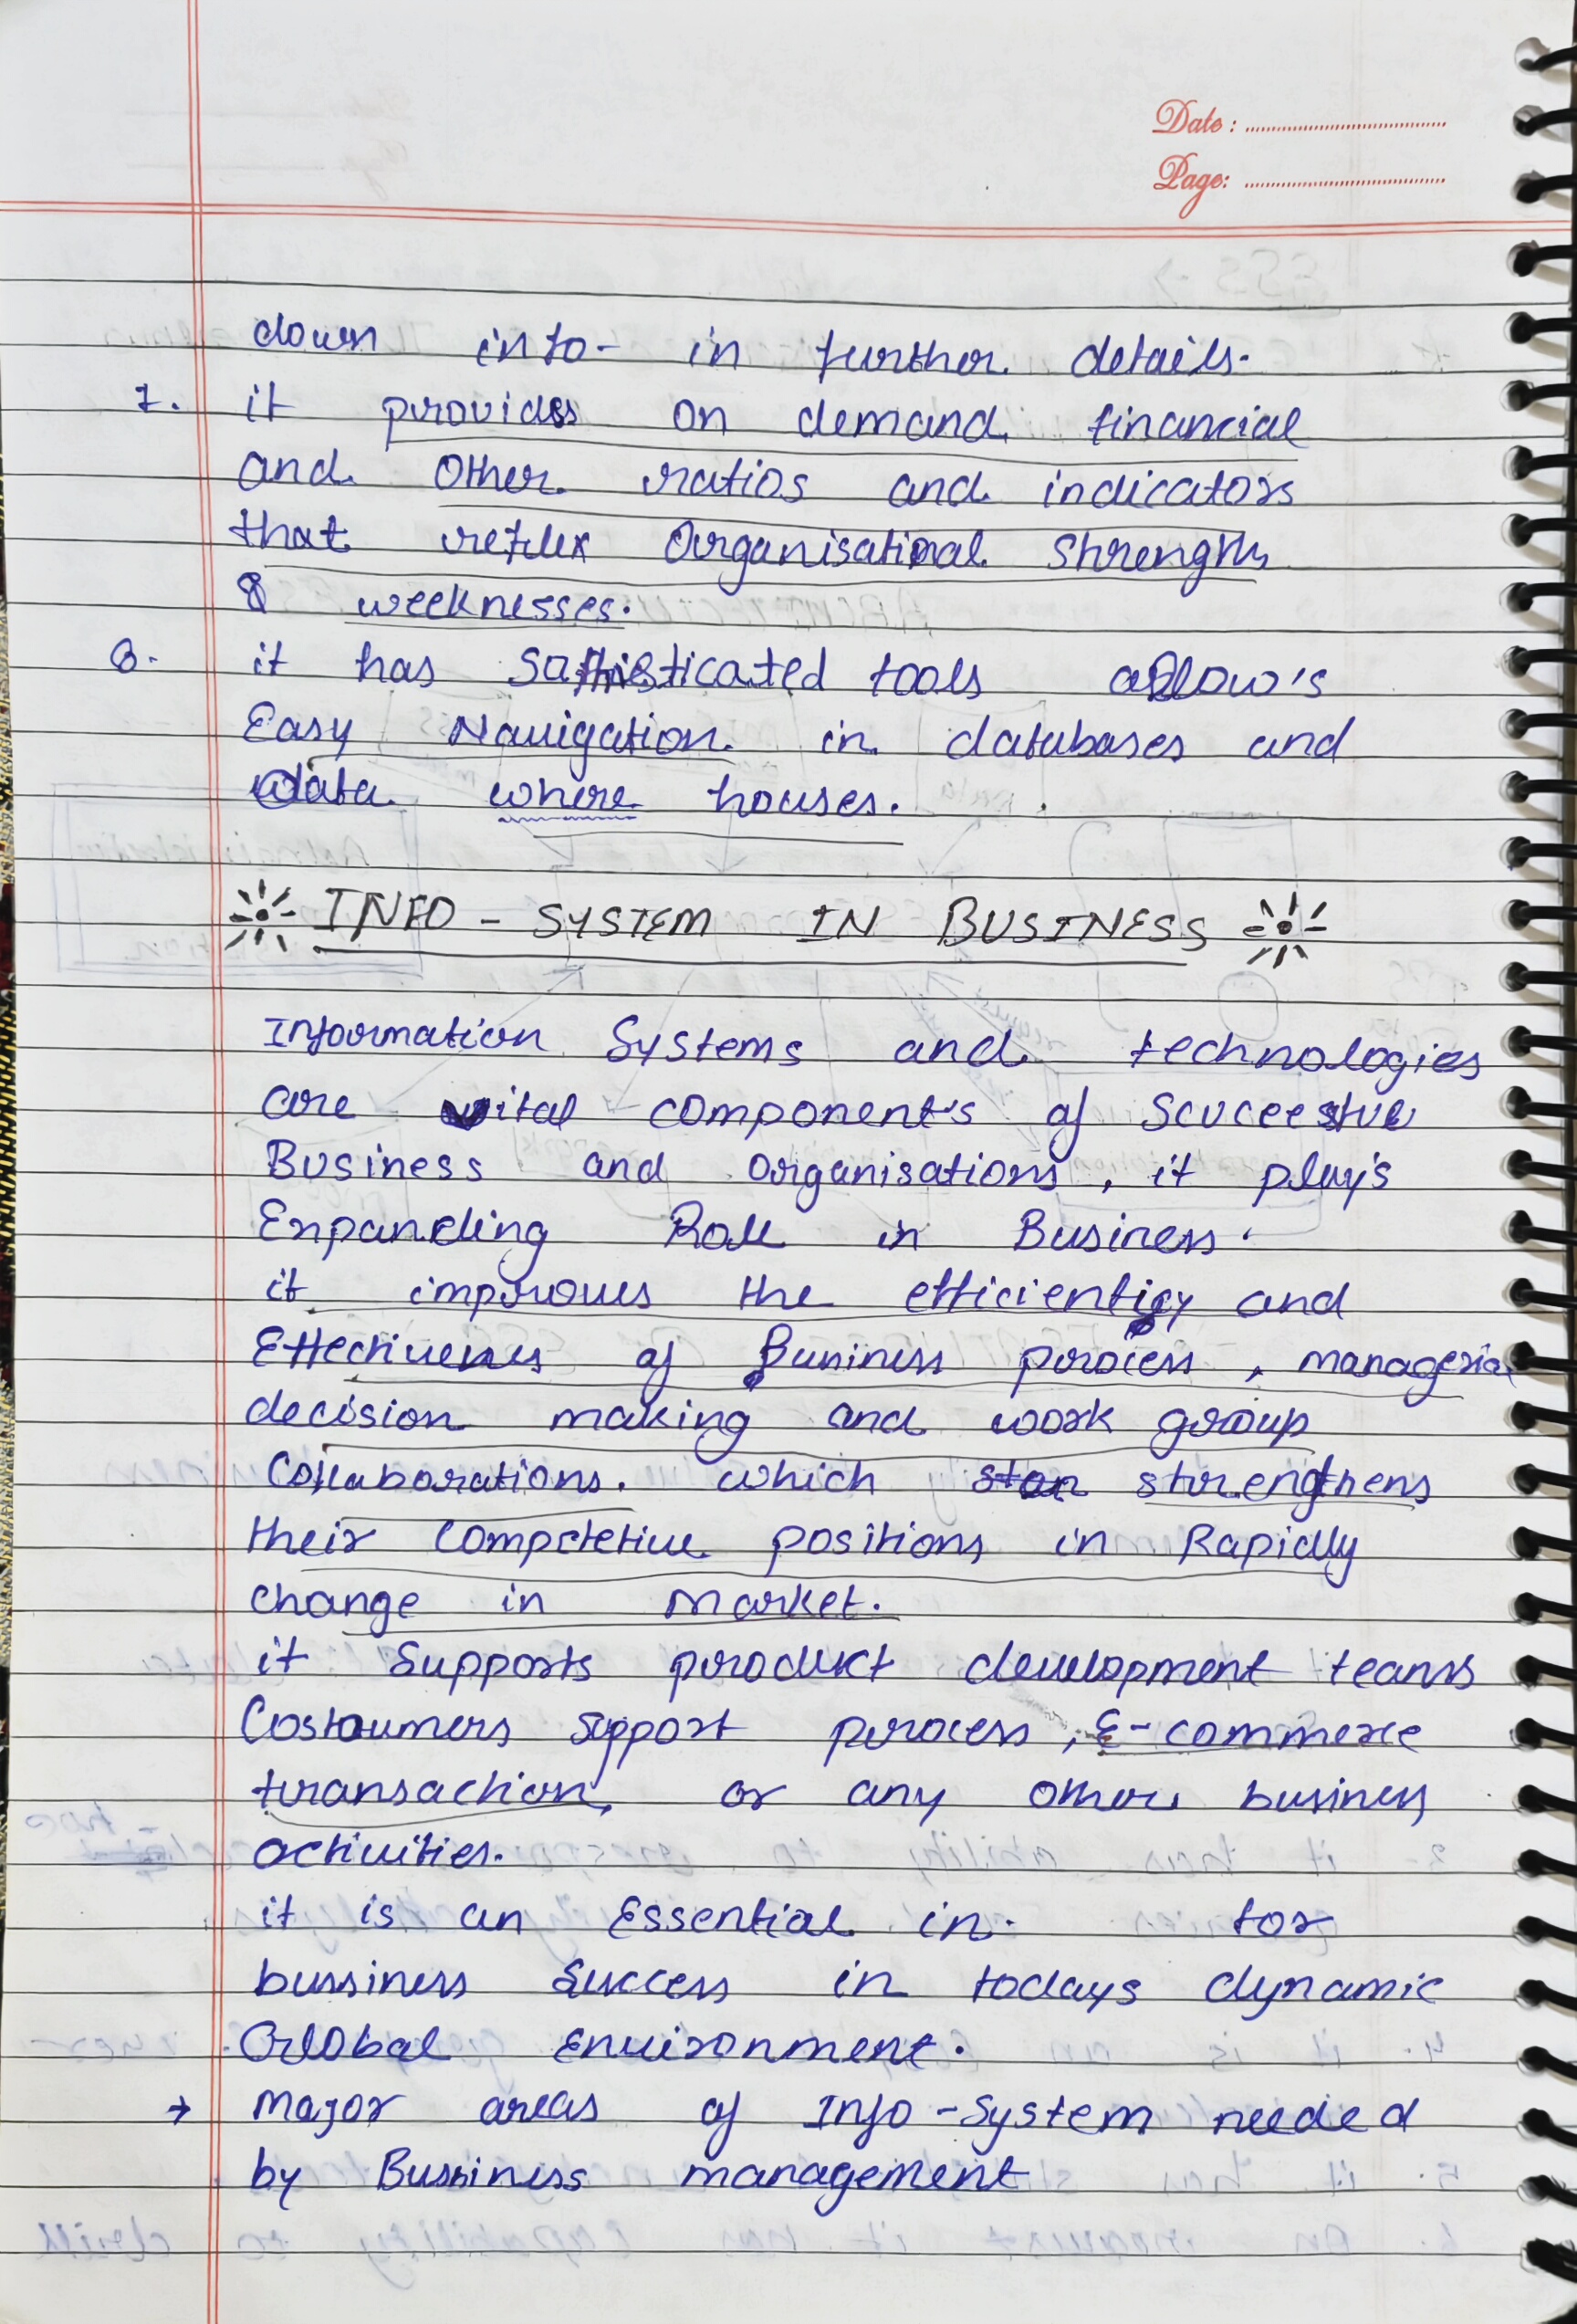 Date :
Page:
down info- in further details.
7. it provides on demand financial
and other ratios and indicators
that reflex Organisational Strength
& weeknesses.
8. it has tools allow's
Easy Navigation in databases and
data where houses.
INFO - SYSTEM IN BUSINESS
Information Systems and technologies
are vital component's of
Business and organisations, it play's
Expanding Role in Business.
it improves the and
Effectiveness of Business process, managerial
decision making and work group
Collaborations. which strengthens
their Competetive positions in Rapidly
change in market.
it Supports product development teams
Costoumers Support process, E-commerce
transaction, or any other business
activities.
it is an Essential in. for
bussiness Success in todays dynamic
Global Environment.
→ Major areas of Info-System needed
by Bussiness management